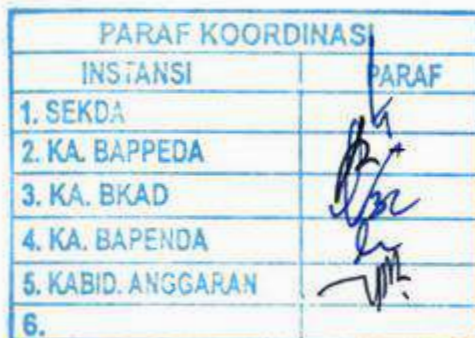 PARAF KOORDINASI
INSTANSI PARAF
1. SEKDA
2. KA. BAPPEDA
3. KA. BKAD
4. KA. BAPENDA
5. KABID. ANGGARAN
6.